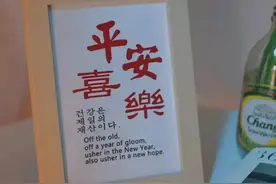 平安喜樂
건강은
제일의
재산이다.
Off the old,
off a year of gloom,
usher in the New Year,
also usher in a new hope.
Chang